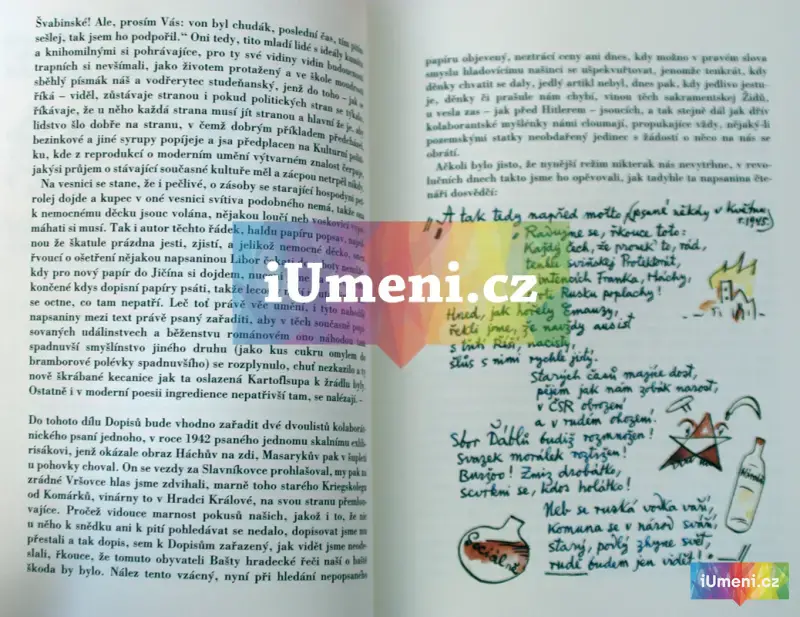 Švabinské! Ale, prosím Vás: von byl chudák, poslední čas, tím pitím
sešlej, tak jsem ho podpořil.“ Oni tedy, tito mladí lidé s ideály
a knihomilnými si pohrávajíce, pro ty své vidiny vidin budoucnosti
trapních si nevšímali, jako životem protažený a ve škole
sběhlý písmák náš a vodřerytec studeňanský, jenž do toho – jak
říká – viděl, zůstávaje stranou i pokud politických stran se týkalo,
říkávaje, že u něho každá strana musí jít stranou a hlavní že je, aby
lidstvo šlo dobře na stranu, v čemž dobrým příkladem předcházel,
bezinkové a jiné syrupy popíjeje a jsa předplacen na Kulturní politi-
ku, kde z reprodukcí o moderním umění výtvarném znalost čerpaje,
jakýsi průjem o stávající současné kultuře měl a zácpou netrpěl nikdy.
Na vesnici se stane, že i pečlivé, o zásoby se starající hospodyni pet-
rolej dojde a kupec v oné vesnici svítiva podobného nemá, takže ona
k nemocnému děcku jsouc volána, nějakou loučí neb voskovicí vypo-
máhati si musí. Tak i autor těchto řádek, haldu papíru popsav, najed-
nou že škatule prázdna jestі, zjistí, a jelikož nemocné děcko,
řvoucí o ošetření nějakou napsaninou Libor
kdy pro nový papír do Jičína si dojdem,
končené kdys dopisní papíry psáti, takže
se octne, co tam nepatří. Leč toť právě věc umění, i tyto nahodilé
napsaniny mezi text právě psaný zařaditi, aby v těch současně popi-
sovaných událinstvech a běženstvu románovém ono náhodou tam
spadnuvší smyslinstvo jiného druhu (jako kus cukru omylem do
bramborové polévky spadnuvšího) se rozplynulo, chuť nezkazilo a ty
nově škrábané kecanice jak ta oslazená Kartoflsupa k žrádlu byly.
Ostatně i v moderní poesii ingredience nepatřivší tam, se nalézají. –
Do tohoto dílu Dopisů bude vhodno zařadit dvě dvoulistů kolaborant-
nického psaní jednoho, v roce 1942 psaného jednomu skalnímu exilo-
risákovi, jenž okázale obraz Háchův na zdi, Masarykův pak v šupleti
u pohovky choval. On se vezdy za Slavníkovce prohlašoval, my pak za
zrádné Vršovce hlas jsme zdvihali, marně toho starého Kriegskolegu
od Komárků, vinárny to v Hradci Králové, na svou stranu přemlou-
vajíce. Pročež vidouce marnost pokusů našich, jakož i to, že nic
u něho k snědku ani k pití pohledávat se nedalo, dopisovat jsme mu
přestali a tak dopis, sem k Dopisům zařazený, jak vidět jsme neode-
slali, řkouce, že tomuto obyvateli Bašty hradecké řečí naší o baště
škoda by bylo. Nález tento vzácný, nyní při hledání nepopsaného
papíru objevený, neztrácí ceny ani dnes, kdy možno v pravém slova
smyslu hladovícímu našinci se ušpekvuřtovat, jenomže tenkrát, kdy
děnky chvatet se daly, jedlý artikl nebyl, dnes pak, kdy jedlivo jestu-
je, děnky či prašule nám chybí, vinou těch sakramentskej Židů,
u vesla zas – jak před Hitlerem – jsoucích, a tak stejně dál jak dřív
kolaborantské myšlénky námi cloumají, propukajíce vždy, nějaký-li
pozemský statky neobdařený jedinec s žádostí o něco na nás se
obrátí.
Ačkoli bylo jisto, že nynější režim nikterak nás nevytrhne, v revo-
lučních dnech takto jsme ho opěvovali, jak tadyhle ta napsanina čte-
náři dosvědčí:
A tak tedy napřed motto (psané někdy v Květnu
r. 1945.
Radujme se, řkouce toto:
Každý čech, že prouek te, rád,
tenhle sviňskej Protektorát,
intencích Franka, Háchy,
Rusků poplachy!
Hned, jak hořely Emauzy,
řekli jsme, že navždy
s tůtí Říší, nacisty,
šlus s nimi rychle jistý.
Starejch časů majíce dost,
pějem jak nám zobák narost,
v ČSR obrození
a v rudém ohození.
Sbor Ďáblů budiž rozmnožen!
Svazek morálek roztržen!
Buržoo! Zmiz drobátko,
sevrkni se, kdos holátko!
Neb se ruská vodka vaří,
Komuna se v národ sváří,
starý, podlý zhyne svět,
rudě budem jen vidět!
Sociální
iUmeni.cz
iUmeni.cz